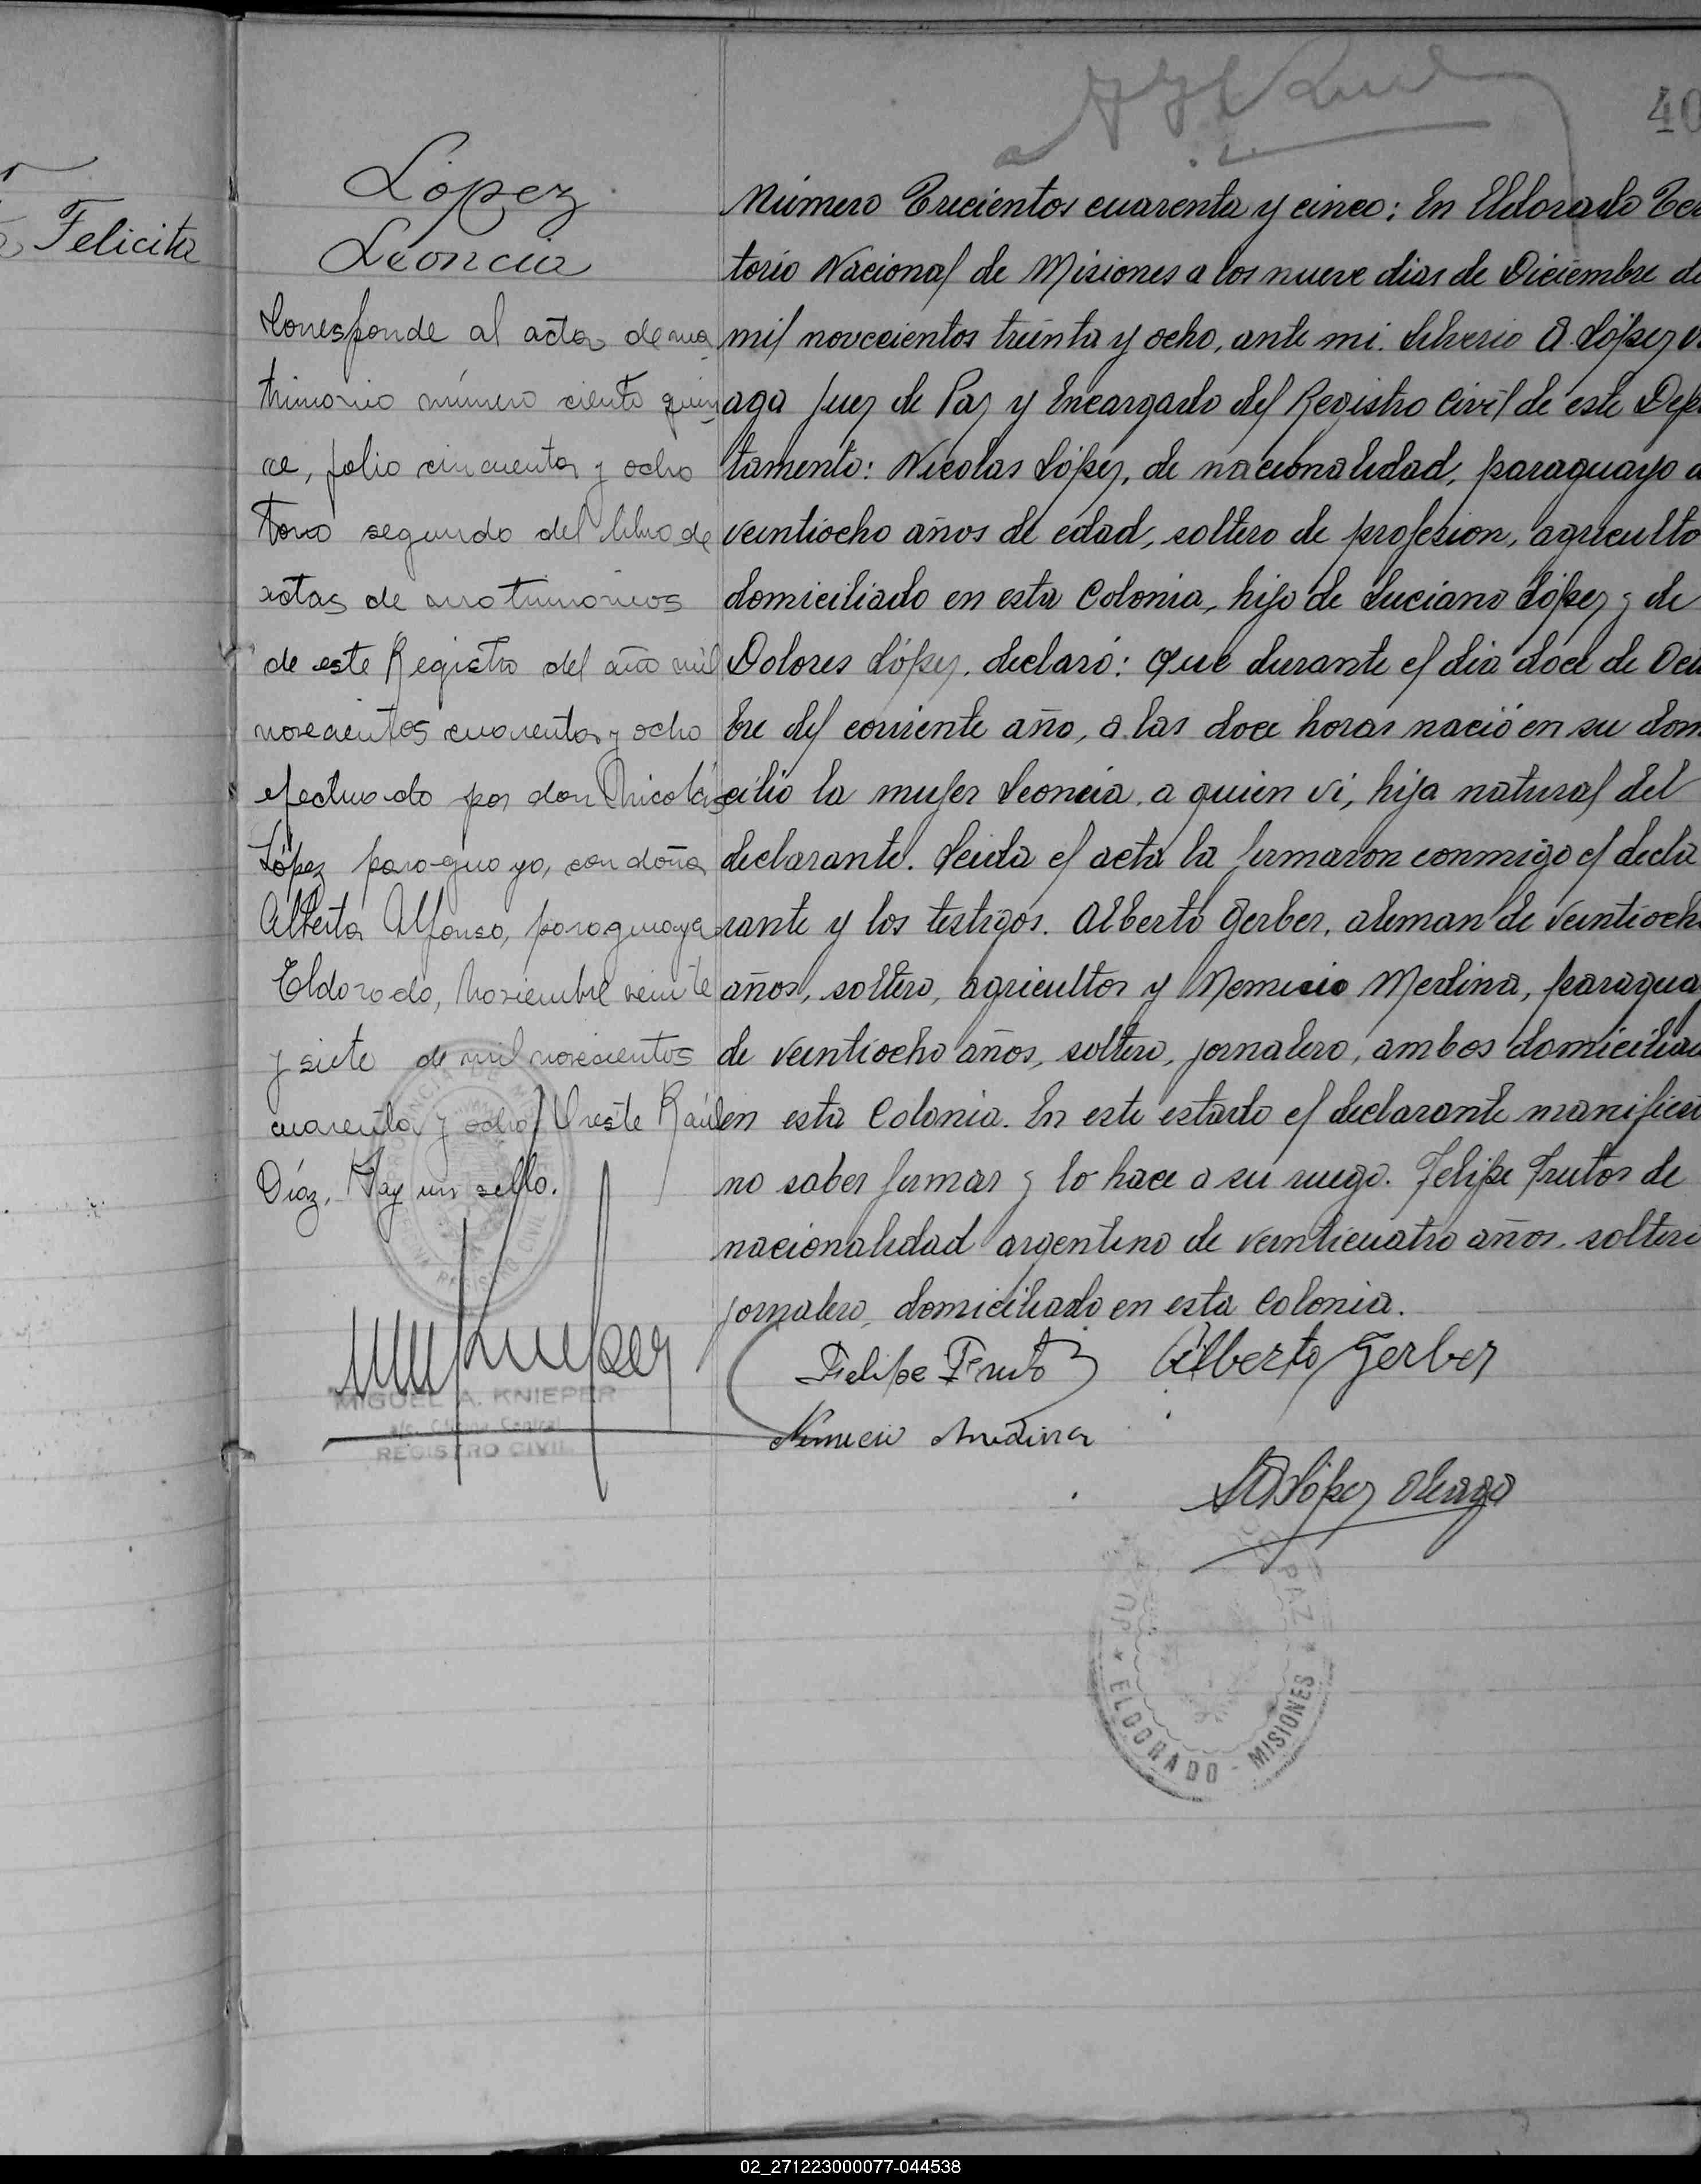 40
Felicita
López
Leoncia
Corresponde al acta de ma
trimonio número ciento quin
ce, folio cincuenta y ocho
tomo segundo del libro de
actas de matrimonios
de este Registro del año mil
novecientos cuarenta y ocho
efectuado por don Nicolás
López paraguayo, con doña
Alberta Alfonso, paraguaya
Eldorado, Noviembre veinte
y siete de mil novecientos
cuarenta y ocho Oreste Raúl
Díaz. Hay un sello.
MIGUEL A. KNIEPER
Oficina Central
REGISTRO CIVIL
Número Trecientos cuarenta y cinco: En Eldorado Terr
torio Nacional de Misiones a los nueve dias de Diciembre de
mil novecientos treinta y ocho, ante mi. Silverio A. López O
aga Juez de Paz y Encargado del Registro Civil de este Dep
tamento: Nicolas López, de nacionalidad, paraguayo
veintiocho años de edad, soltero de profesion, agriculto
domiciliado en esta Colonia, hijo de Luciano López y de
Dolores López. declaró: Que durante el dia doce de Octu
bre del corriente año, a las doce horas nació en su dom
cilio la mujer Leoncia, a quien vi, hija natural del
declarante. Leida el acta la firmaron conmigo el decla
rante y los testigos. Alberto Gerber, aleman de veintioch
años, soltero, agricultor y Nemecio Medina, paragua
de veintiocho años, soltero, jornalero, ambos domicilia
en esta Colonia. En este estado el declarante manifiest
no saber firmar y lo hace a su ruego. Felipe Frutos de
nacionalidad argentino de veinticuatro años, soltero
jornalero, domiciliado en esta Colonia.
Felipe Fruto Alberto Gerber
Nemecio Medina
López
PAZ
ELDORADO - MISIONES
02_271223000077-044538